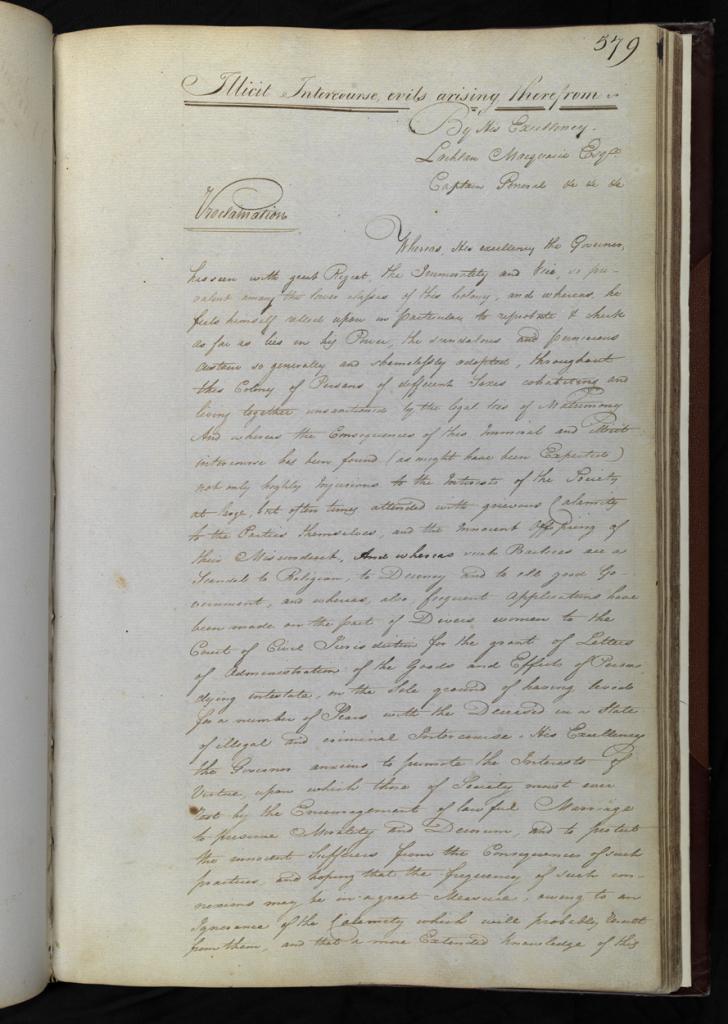 579
Illicit Intercourse, evils arising therefrom
By His Excellency.
Lachlan Macquarie Esqre
Captain General &c &c &c
Proclamation
Whereas, His excellency the Governor,
has seen with great Regret, the Immorality and Vice, so pre-
valent among the lower classes of this Colony, and whereas, he
feels himself called upon in particular to reprobate & check
as far as lies in his Power, the scandalous and pernicious
custom so generally and shamelessly adopted, throughout
this Colony of Persons of different Sexes cohabiting and
living together unsanctioned by the legal ties of Matrimony
And whereas the Consequences of this Immoral and illicit
intercourse has been found (as might have been Expected)
not only highly Injurious to the Interests of the Society
at large, but often times attended with grievous Calamity
to the Parties themselves, and the Innocent Offspring of
their Misconduct, And whereas such Practices are a
Scandal to Religion, to Decency and to all good Go-
vernment, and whereas, also, frequent applications have
been made on the part of Divers, women to the
Court of Civil Jurisdiction for the grant of Letters
of Administration of the Goods and Effects of Persons
dying intestate, on the Sole ground of having lived
for a number of Years with the Deceased in a State
of illegal and criminal Intercourse. His Excellency
the Governor anxious to promote the Interests of
Virtue, upon which those of Society must ever
rest by the Encouragement of lawful Marriage
to preserve Morality and Decorum, and to protect
the innocent Sufferers from the Consequences of such
practices, and hoping that the frequency of such con-
nexions may be in a great Measure, owing to an
Ignorance of the Calamity which will probably result
from them, and that a more Extended knowledge of this